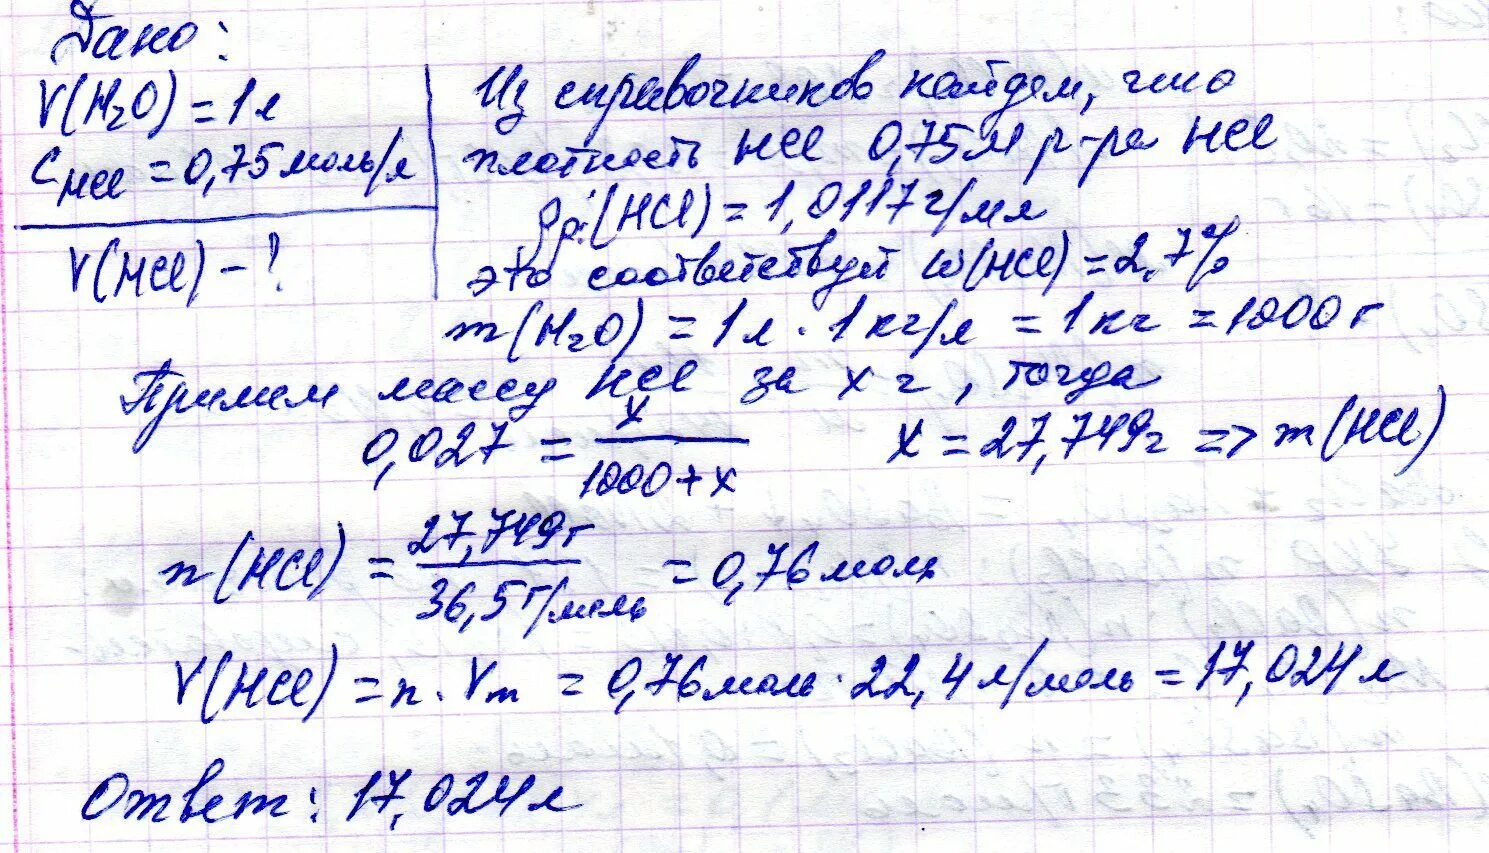 Дано:
V(H₂O) = 1 л
C_HCl = 0,75 моль/л
V(HCl) - ?
Из справочников найдем, что
плотность HCl 0,75 М р-ра HCl
ρр.(HCl) = 1,0117 г/мл
это соответствует ω(HCl) = 2,7%
m(H₂O) = 1 л · 1 кг/л = 1 кг = 1000 г
Примем массу HCl за x г, тогда
0,027 = x / (1000 + x) x = 27,749 г => m(HCl)
n(HCl) = 27,749 г / 36,5 г/моль = 0,76 моль
V(HCl) = n · Vm = 0,76 моль · 22,4 л/моль = 17,024 л
Ответ: 17,024 л